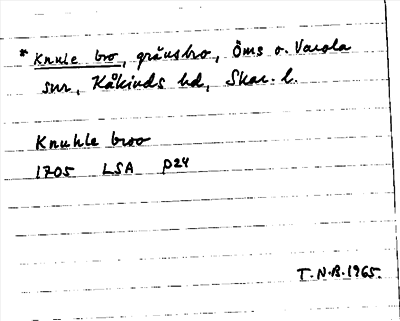 * Knule bro, gränsbro, Öms o. Varola
snr, Kåkinds hd, Skar. l.
Knuhle broo
1705 LSA P24
T.N.B.1965.